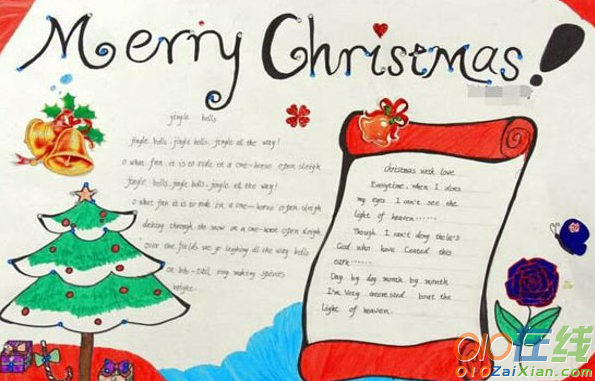 Merry Christmas!
jingle bells
jingle bells, jingle bells, jingle all the way!
o what fun it is to ride in a one-horse open sleigh
jingle bells, jingle bells, jingle all the way!
o what fun it is to ride in a one-horse open sleigh
dashing through the snow in a one-horse open sleigh
over the fields we go laughing all the way bells
on bob-tail ring making spirits
bright.
Christmas with love
Everytime, when I
my eyes I can't see the
light of heaven......
Though I can't
God who have this

Day by day month by month
I'm Very the
light of heaven.
010在线
010ZaiXian.com